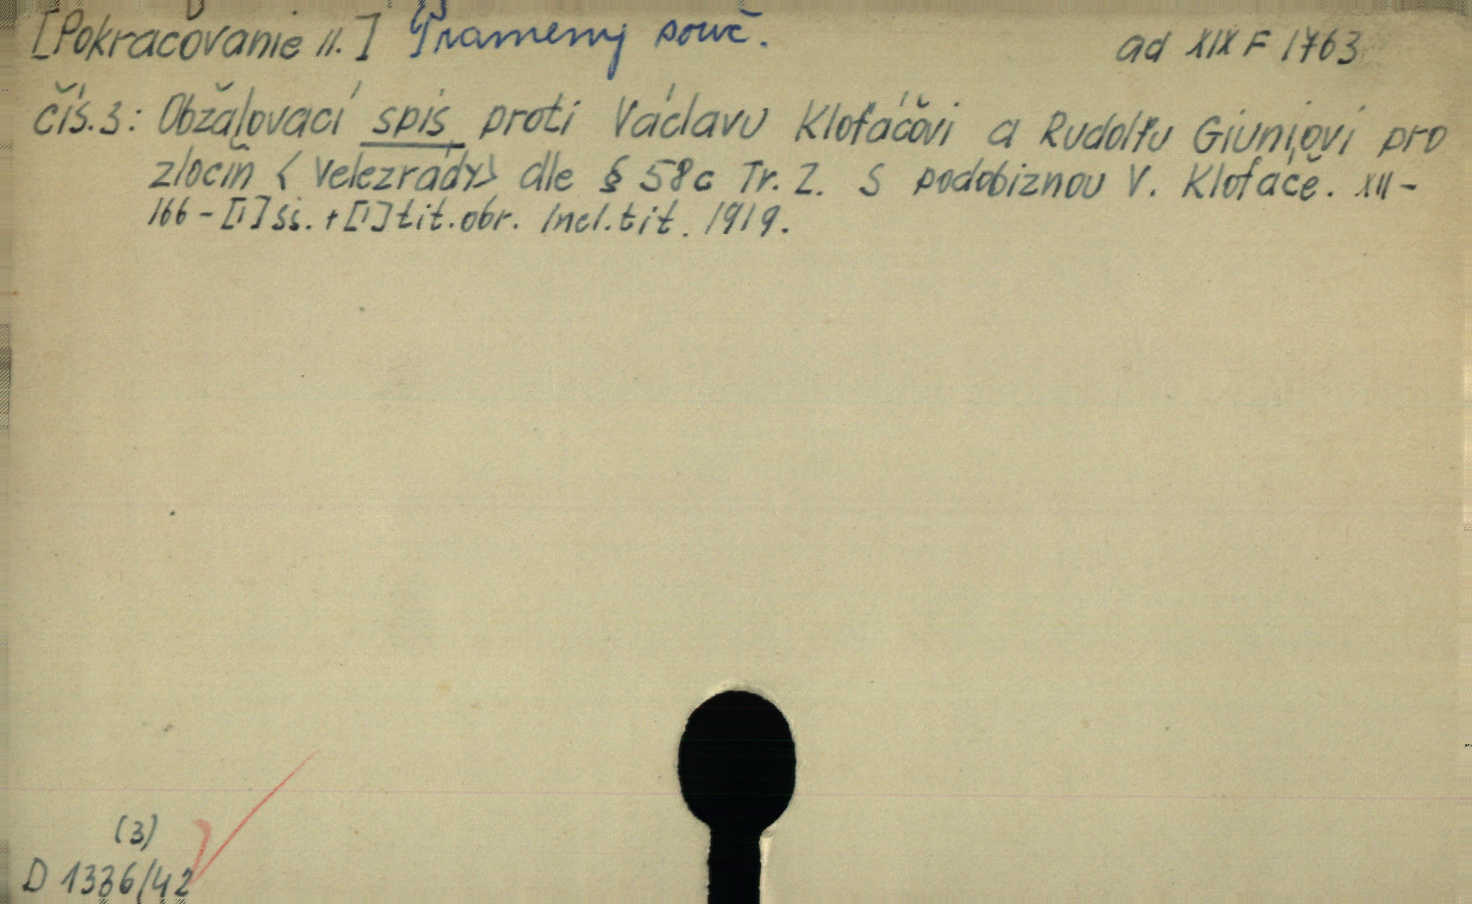 [Pokračovanie II.] Prameny souč. ad XIX F 1763
čís. 3: Obžalovací spis proti Václavu Klofáčovi a Rudolfu Giuniovi pro
zločin <velezrády> dle § 58c Tr. Z. S podobiznou V. Klofáče. XII-
166-[I] ss. + [I] tit. obr. Incl. tit. 1919.
(3)
D 1336/42